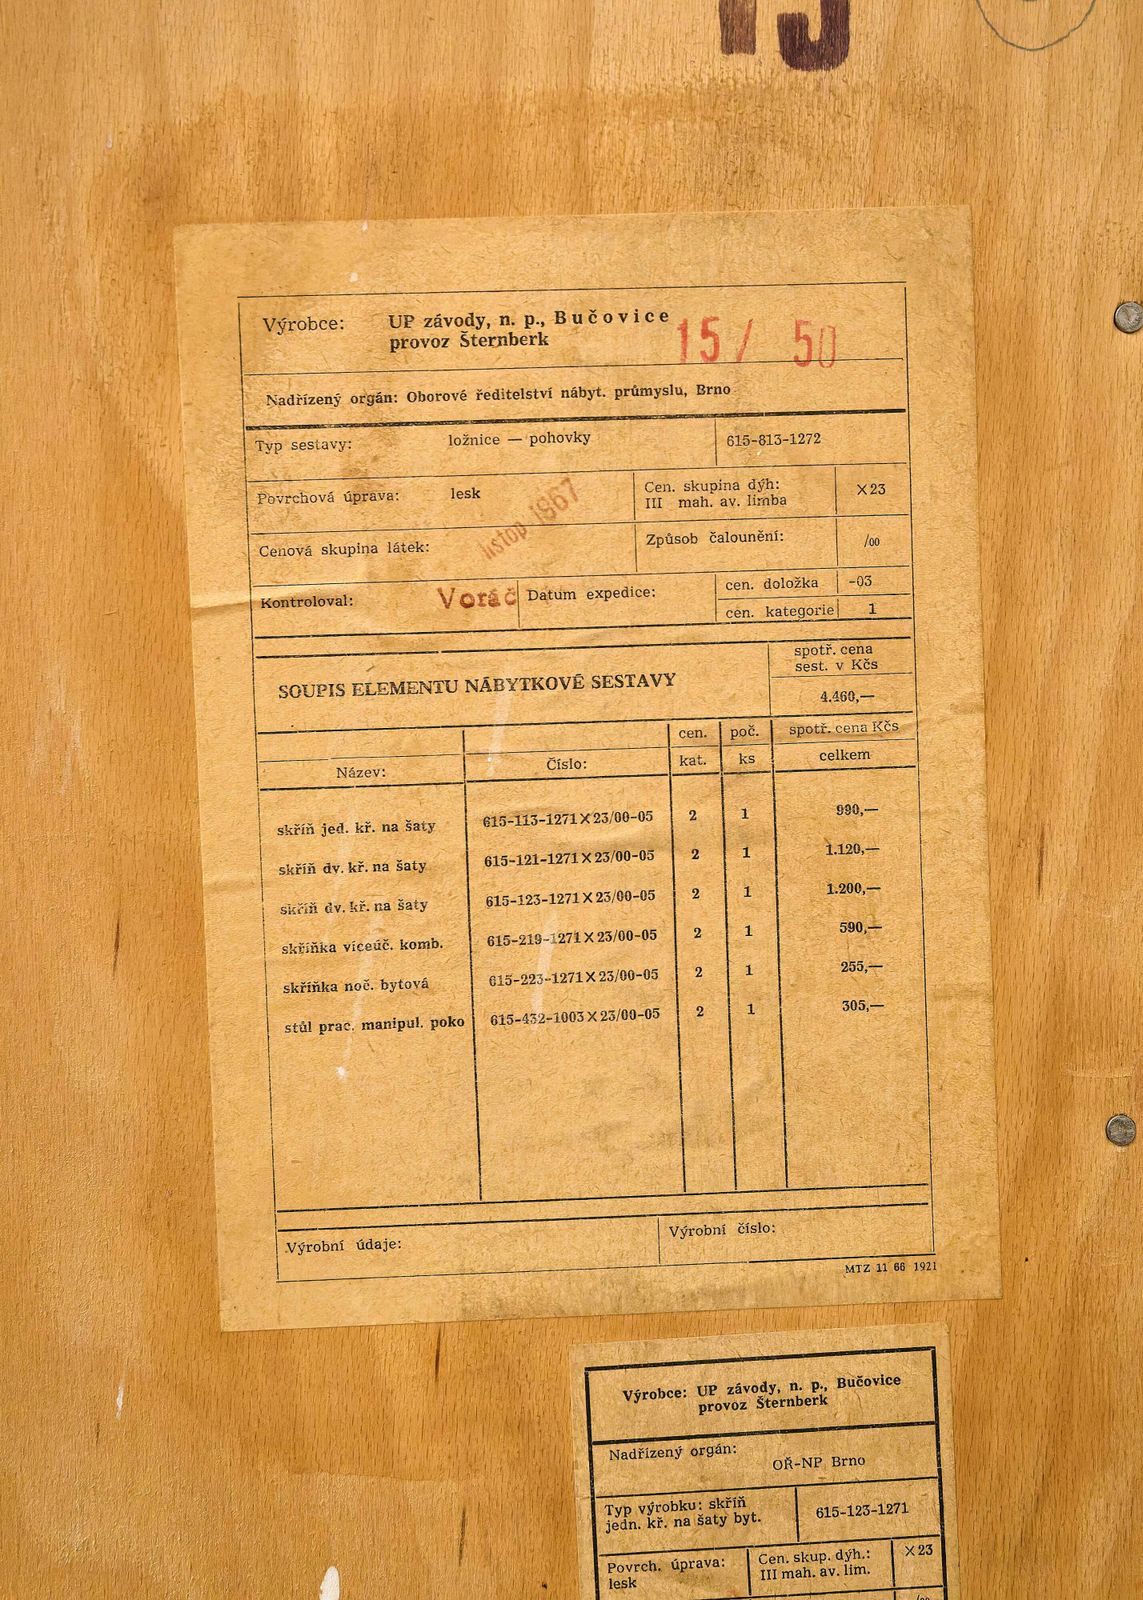 15
Výrobce: UP závody, n. p., Bučovice
provoz Šternberk
15/ 50
Nadřízený orgán: Oborové ředitelství nábyt. průmyslu, Brno
Typ sestavy: ložnice — pohovky 615-813-1272
Povrchová úprava: lesk Cen. skupina dýh: X23
III mah. av. limba
listop 1967
Cenová skupina látek: Způsob čalounění: /00
Kontroloval: Voráč Datum expedice: cen. doložka -03
cen. kategorie 1
SOUPIS ELEMENTU NÁBYTKOVÉ SESTAVY spotř. cena
sest. v Kčs
4.460,—
Název: Číslo: cen. kat. poč. ks spotř. cena Kčs
celkem
skříň jed. kř. na šaty 615-113-1271X23/00-05 2 1 990,—
skříň dv. kř. na šaty 615-121-1271X23/00-05 2 1 1.120,—
skříň dv. kř. na šaty 615-123-1271X23/00-05 2 1 1.200,—
skříňka víceúč. komb. 615-219-1271X23/00-05 2 1 590,—
skříňka noč. bytová 615-223-1271X23/00-05 2 1 255,—
stůl prac. manipul. poko 615-432-1003X23/00-05 2 1 305,—
Výrobní údaje: Výrobní číslo:
MTZ 11 66 1921
Výrobce: UP závody, n. p., Bučovice
provoz Šternberk
Nadřízený orgán:
OŘ-NP Brno
Typ výrobku: skříň
jedn. kř. na šaty byt. 615-123-1271
Povrch. úprava: Cen. skup. dýh.: X23
lesk III mah. av. lim.